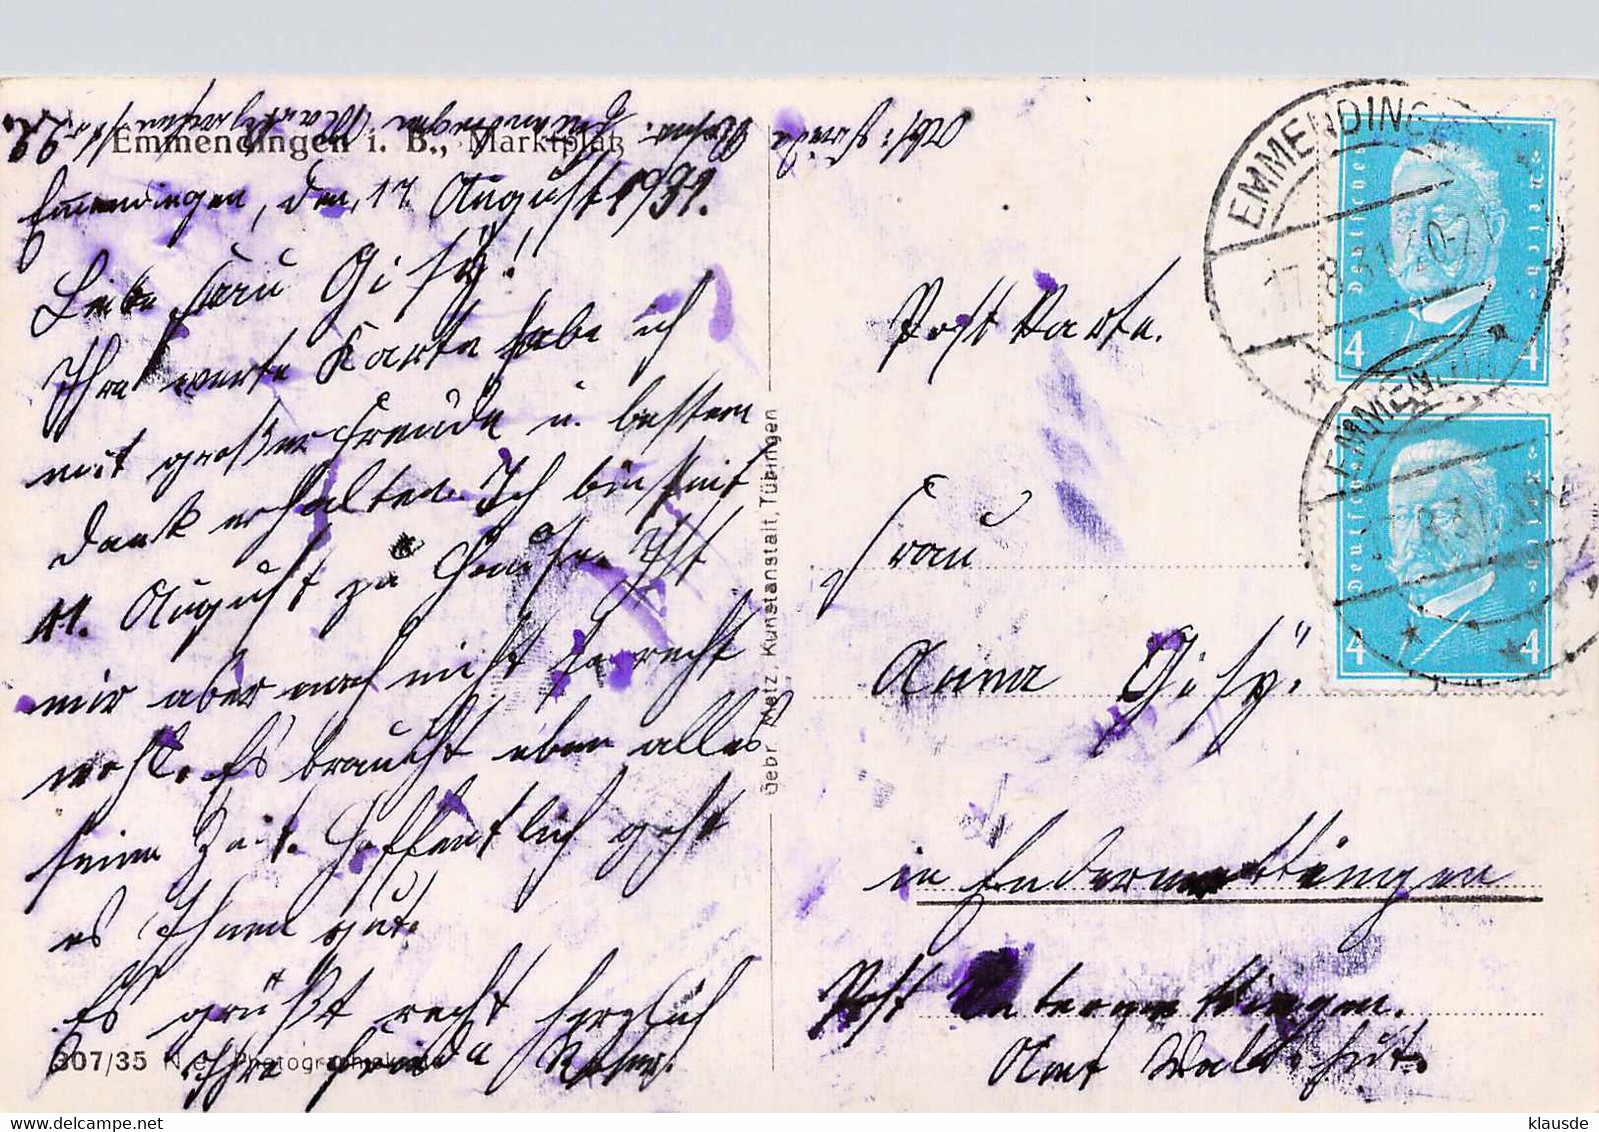 Emmendingen i. B., Marktplatz
Emmendingen, den, 17. August 1931.
Liebe Frau Gisy!
Ihre werte Karte habe ich
mit großer Freude u. bestem
Dank erhalten. Ich bin seit
11. August zu Hause. Ist
mir aber noch nicht so recht
wohl. Es braucht eben alles
seine Zeit. Hoffentlich geht
es Ihnen gut.
Es grüßt recht herzlich
Ihre Frieda
307/35 N.e. Photographiekarte
Gebr. Metz, Kunstanstalt, Tübingen
Postkarte.
Frau
Anna Gisy.
in
Post
Amt Waldshut.
EMMENDINGEN
17.8.31.20-21
Deutsches Reich
4 4
EMMENDINGEN
Deutsches Reich
4 4
klausde